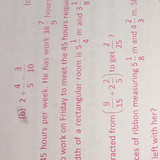 (b) 2 + 4/5
45 hours per week. He has work 38 hours
work on Friday to meet the 45 hours
of a rectangular room is 5 1/4 m and 3 1/8
from (9/15 + 2 2/5) to get 2/25 ?
of ribbon measuring 5 1/8 m and 4 m.
with her?